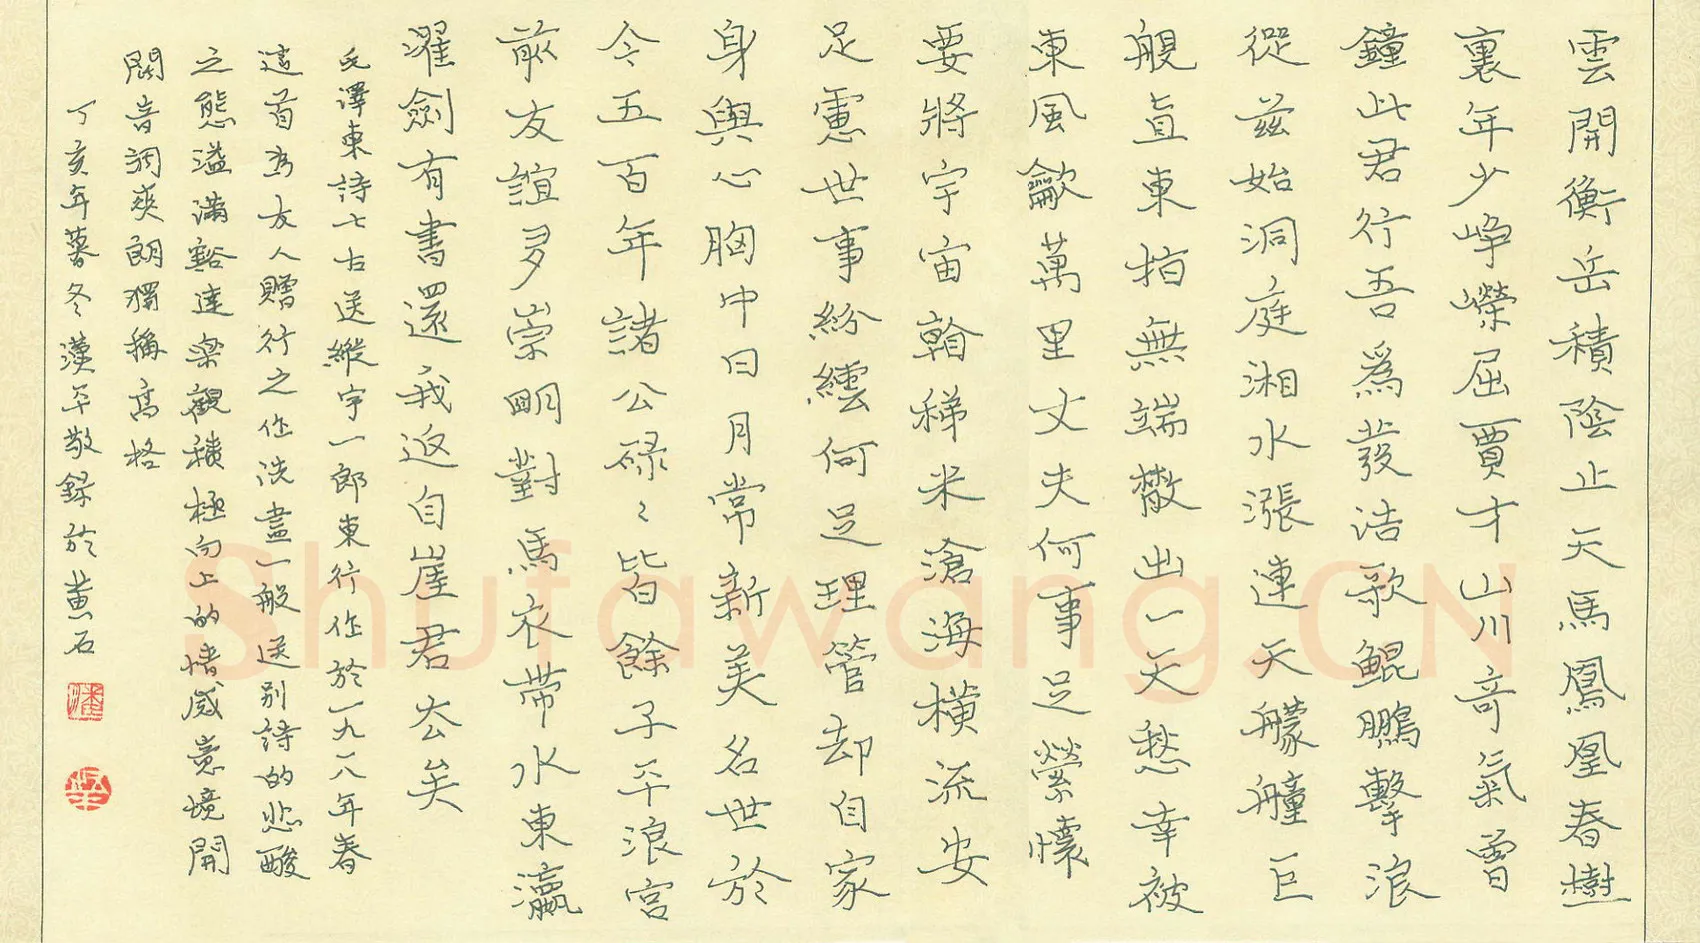 雲開衡岳積陰止天馬鳳凰春樹
裏年少崢嶸屈賈才山川奇氣曾
鐘此君行吾爲發浩歌鯤鵬擊浪
從茲始洞庭湘水漲連天艨艟巨
艦直東指無端散出一天愁幸被
東風吹萬里丈夫何事足縈懷
要將宇宙看稊米滄海橫流安
足慮世事紛紜何足理管却自家
身與心胸中日月常新美名世於
今五百年諸公碌〻皆餘子平浪宮
前友誼多崇明對馬衣帶水東瀛
濯劍有書還我返自崖君去矣
毛澤東詩七古送縱宇一郎東行作於一九一八年春
這首為友人贈行之作洗盡一般送别詩的悲酸
之態溢滿豁達樂觀積極向上的情感意境開
闊音調爽朗獨稱高格
丁亥年暮冬漢平敬錄於黄石
潘
Shufawang.CN